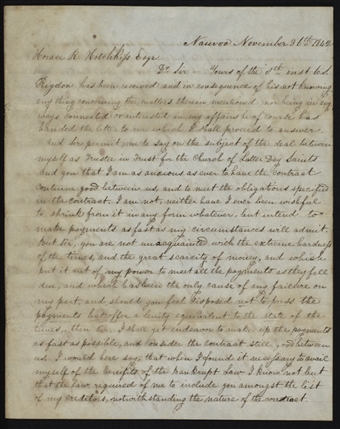 Nauvoo November 26th 1842
Horace R. Hotchkiss Esqr.
Dr Sir Yours of the 8th inst to S.
Rigdon has been received and in consequence of his not knowing
any thing concerning the matters therein mentioned nor being in any
ways connected or interested in my affairs he of course has
handed the letter to me which I shall proceed to answer
And Sir permit me to say on the subject of the deal between
myself as Trustee in Trust for the Church of Latter Day Saints
And you that I am as anxious as ever to have the contract
continue good between us and to meet the obligations specified
in the contract. I am not, neither have I ever been wishful
to shrink from it in any form whatever, but intend to
make payments as fast as my circumstances will admit.
But Sir, you are not unacquainted with the extreme hardness
of the times, and the great scarcity of money, and which
put it out of my power to meet all the payments as they fell
due, and which has been the only cause of any failure on
my part, and should you feel disposed not to press the
payments but offer a lenity equivalent to the state of the
times, then Sir, I shall yet endeavor to make up the payments
as fast as possible, and consider the contract still good between
us. I would here say that when I found it necessary to avail
myself of the benefits of the Bankrupt Law I knew not but
that the law required of me to include you amongst the list
of my creditors, notwithstanding the nature of the contract.